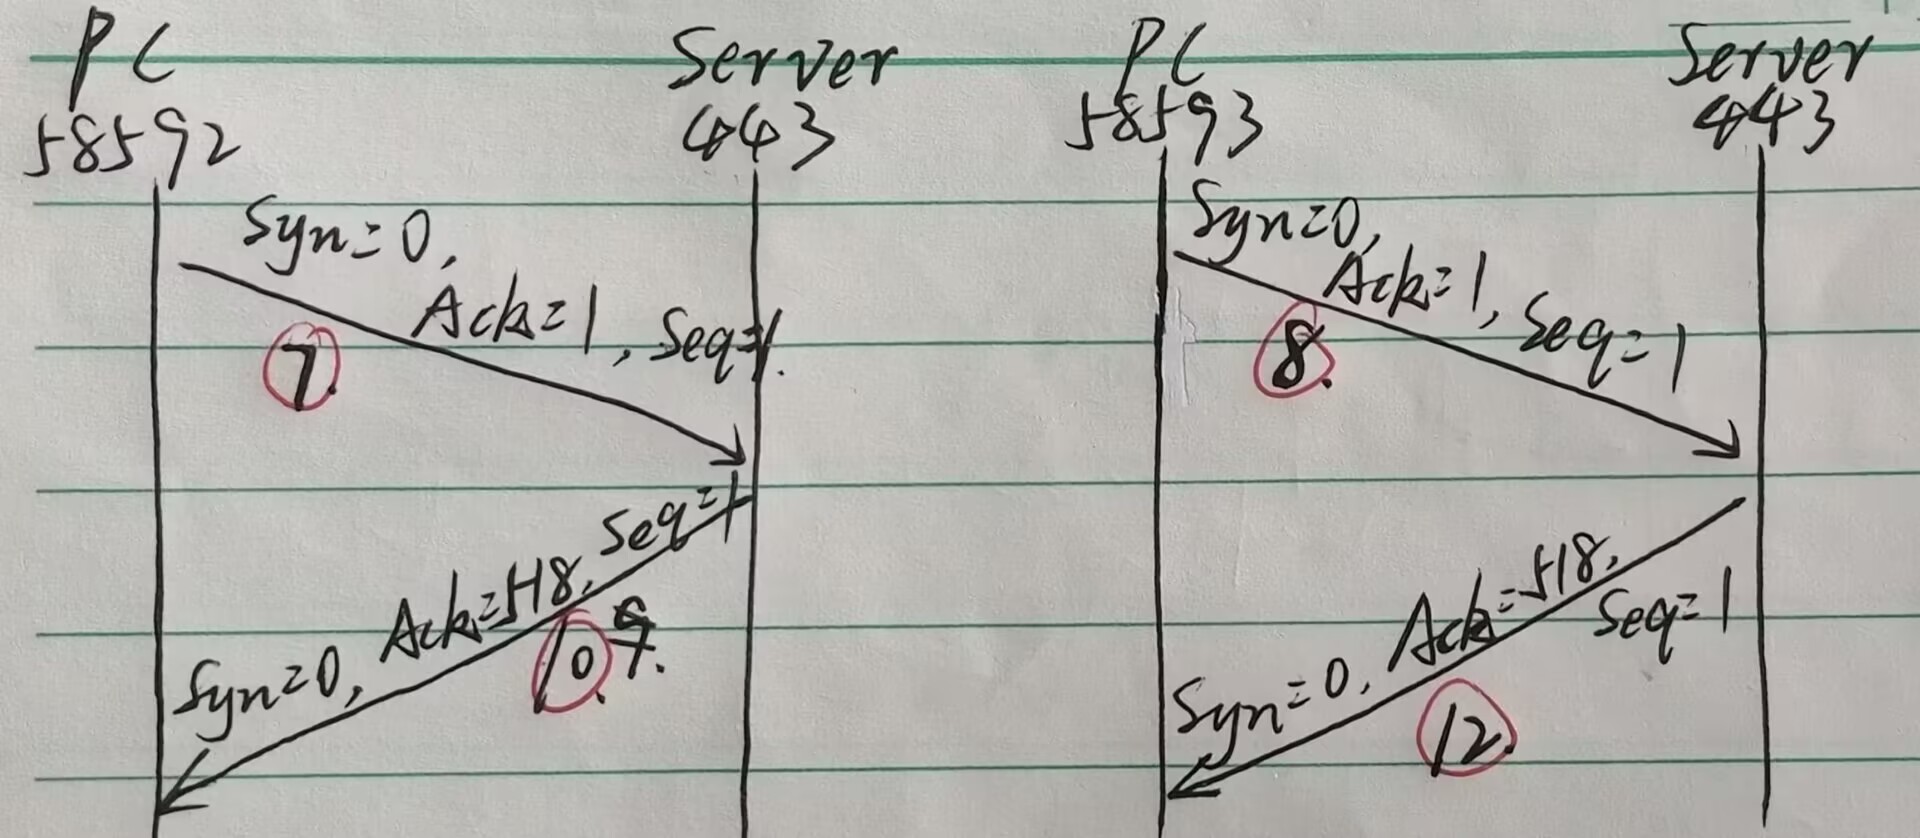 PC
58592
Server
443
Syn=0,
Ack=1, Seq=1.
7.
Seq=1
Ack=518,
Syn=0,
10.
PC
58593
Server
443
Syn=0,
Ack=1, Seq=1
8.
Ack=518,
Seq=1
Syn=0,
12.